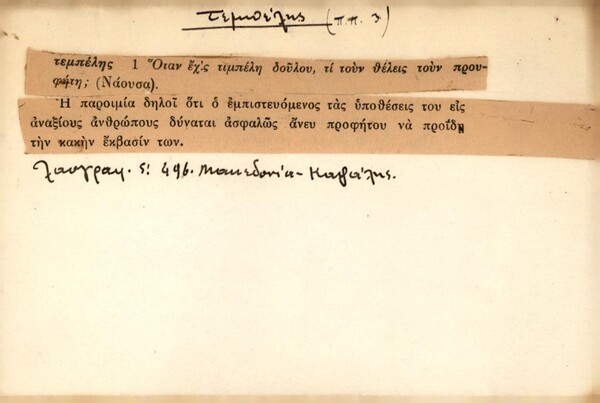 τεμπέλης (π.π. 3)
τεμπέλης 1 Ὅταν ἔχ'ς τιμπέλη δοῦλου, τί τοὺν θέλεις τοὺν πρου-
φήτη; (Νάουσα).
Ἡ παροιμία δηλοῖ ὅτι ὁ ἐμπιστευόμενος τὰς ὑποθέσεις του εἰς
ἀναξίους ἀνθρώπους δύναται ἀσφαλῶς ἄνευ προφήτου νὰ προΐδῃ
τὴν κακὴν ἔκβασίν των.
Λαογραφ. 496. Μακεδονία -